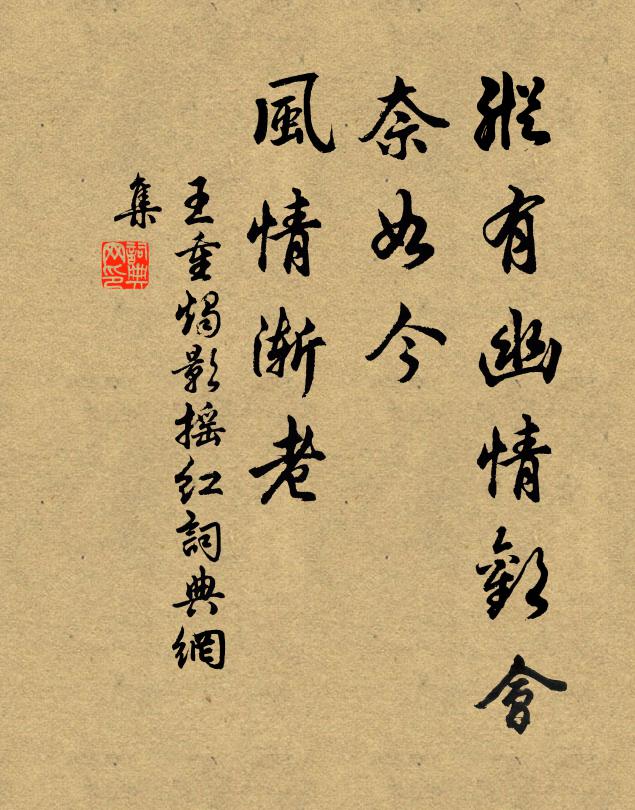 縱有幽情歡會
奈如今
風情漸老
王重燭影摇紅詞典網
集
詞典網印